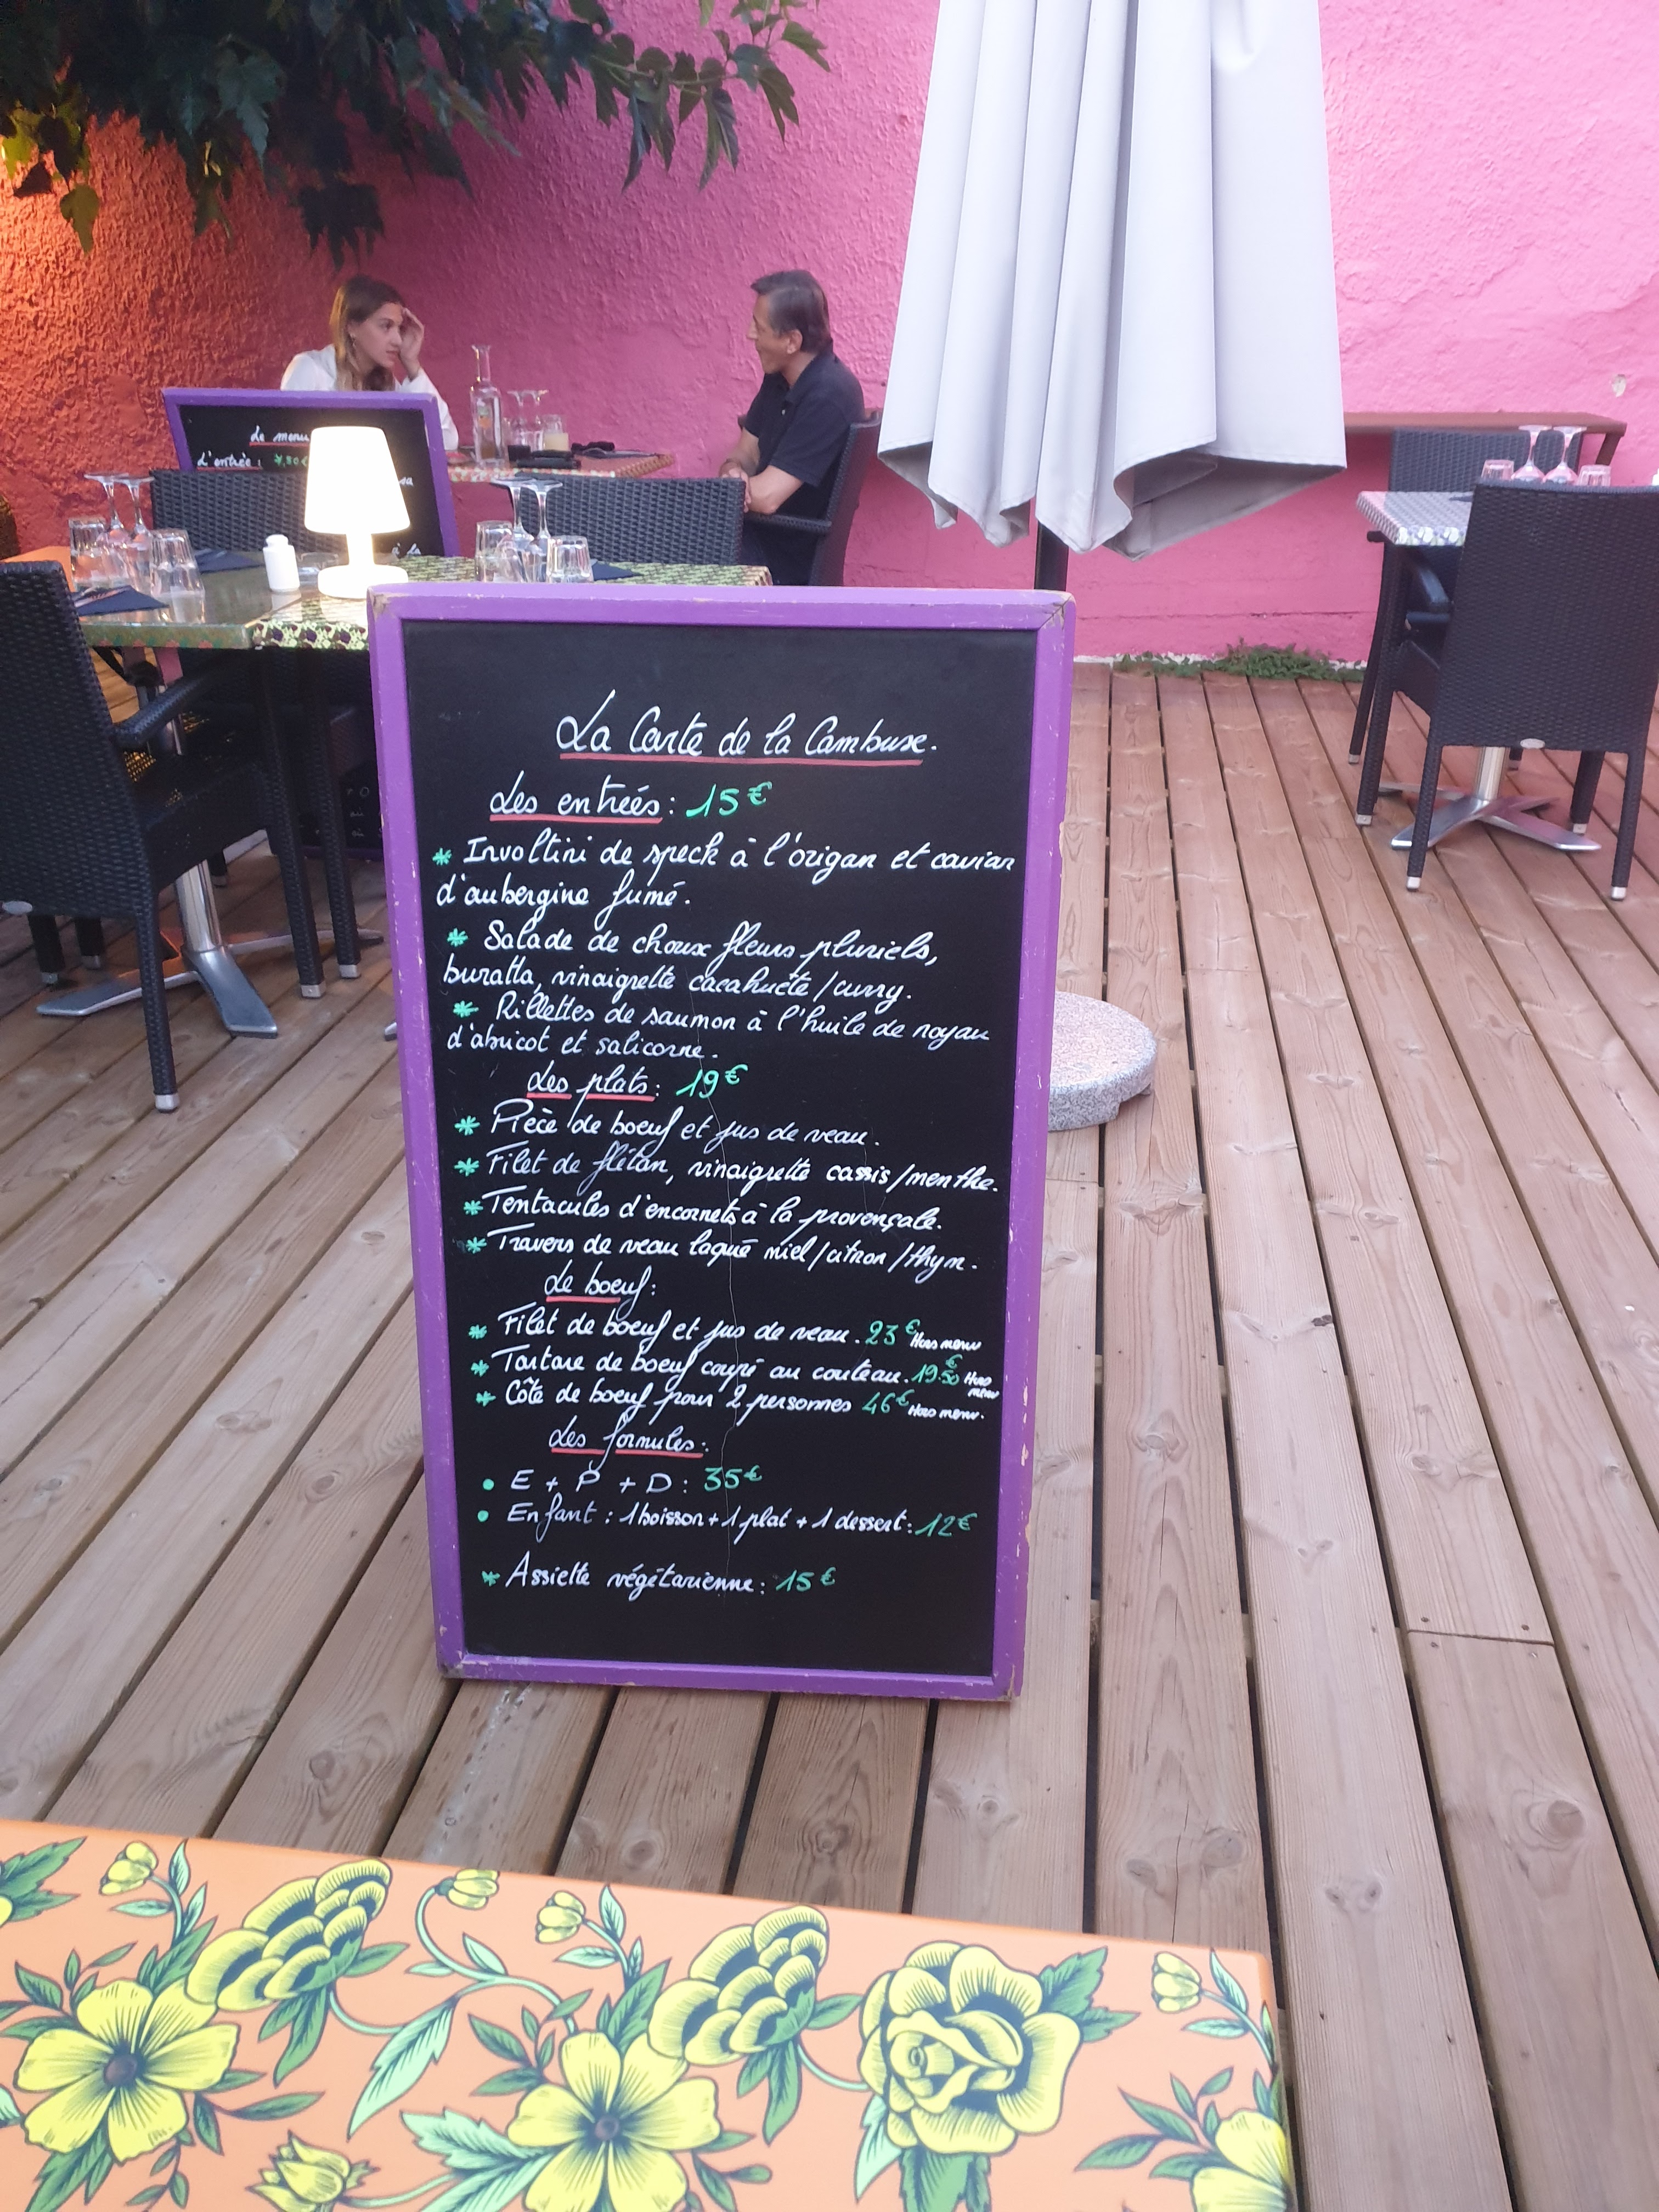 Le menu
L'entrée: 7,50€
à la
La Carte de la Cambuse.
Les entrées: 15€
* Involtini de speck à l'origan et caviar
d'aubergine fumé.
* Salade de choux fleurs pluriels,
buratta, vinaigrette cacahuète/curry.
* Rillettes de saumon à l'huile de noyau
d'abricot et salicorne.
Les plats: 19€
* Pièce de boeuf et jus de veau.
* Filet de flétan, vinaigrette cassis/menthe.
* Tentacules d'encornets à la provençale.
* Travers de veau laqué miel/citron/thym.
Le boeuf:
* Filet de boeuf et jus de veau. 23€ Hors menu
* Tartare de boeuf coupé au couteau. 19.50€ Hors menu
* Côte de boeuf pour 2 personnes 46€ Hors menu.
Les formules:
• E + P + D: 35€
• Enfant: 1 boisson + 1 plat + 1 dessert: 12€
* Assiette végétarienne: 15€